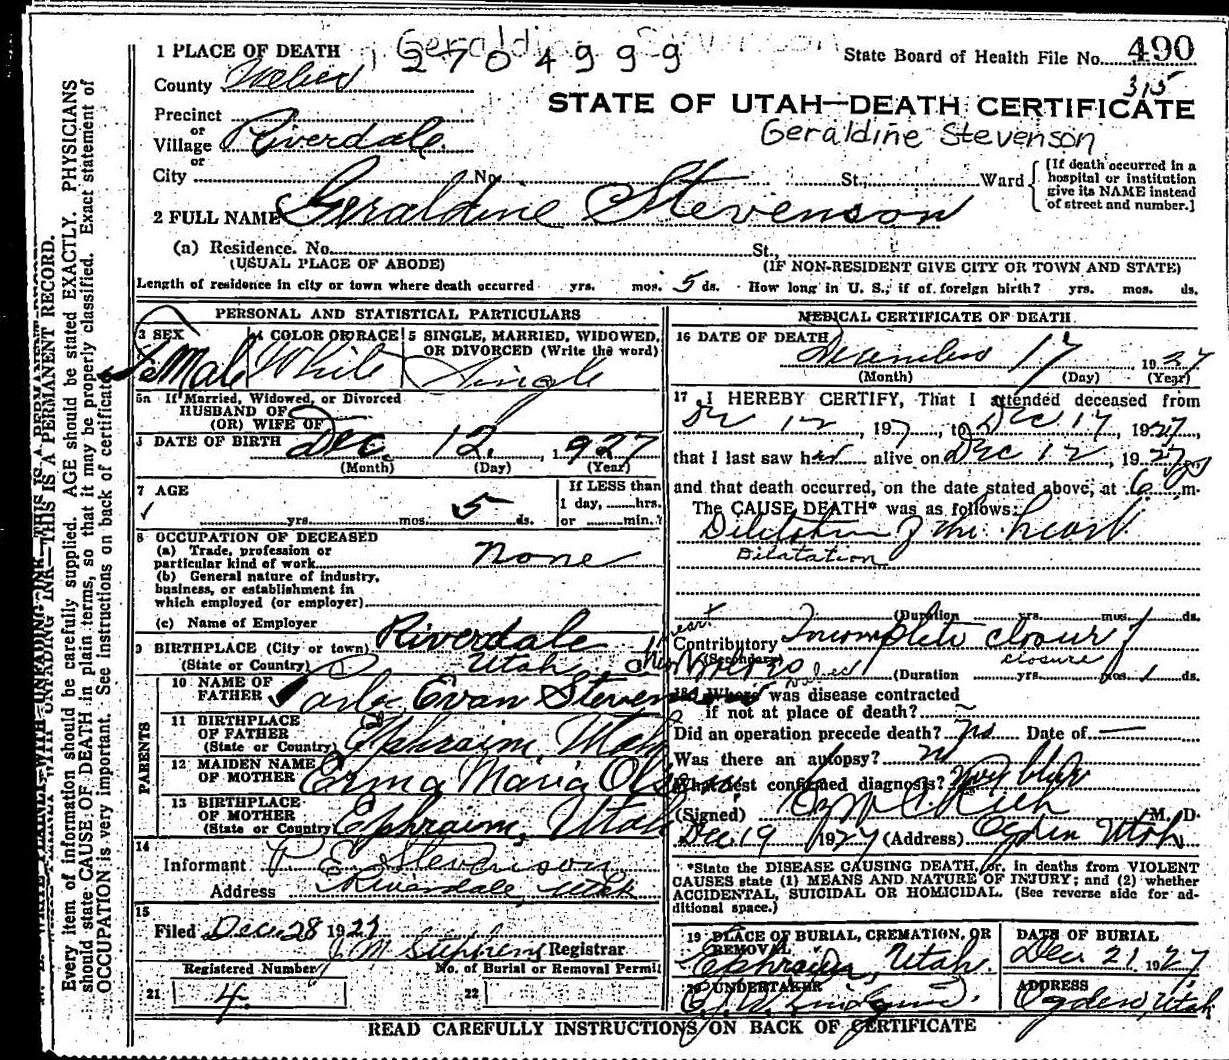 1 PLACE OF DEATH Geraldine
2704999
State Board of Health File No. 490
County Weber
315
STATE OF UTAH—DEATH CERTIFICATE
Precinct
or
Village Riverdale
Geraldine Stevenson
or
City No. St., Ward
[If death occurred in a
hospital or institution
give its NAME instead
of street and number.]
2 FULL NAME Geraldine Stevenson
(a) Residence. No. St.,
(USUAL PLACE OF ABODE) (IF NON-RESIDENT GIVE CITY OR TOWN AND STATE)
Length of residence in city or town where death occurred yrs. mos. 5 ds. How long in U. S., if of foreign birth? yrs. mos. ds.
PERSONAL AND STATISTICAL PARTICULARS
3 SEX 4 COLOR OR RACE 5 SINGLE, MARRIED, WIDOWED,
OR DIVORCED (Write the word)
feMale White Single
5a If Married, Widowed, or Divorced
HUSBAND OF
(OR) WIFE OF
6 DATE OF BIRTH Dec. 12, 1927
(Month) (Day) (Year)
7 AGE
yrs. mos. 5 ds.
If LESS than
1 day, hrs.
or min.?
8 OCCUPATION OF DECEASED
(a) Trade, profession or
particular kind of work none
(b) General nature of industry,
business, or establishment in
which employed (or employer)
(c) Name of Employer
9 BIRTHPLACE (City or town) Riverdale
(State or Country) Utah
PARENTS
10 NAME OF
FATHER Parley Evan Stevenson
11 BIRTHPLACE
OF FATHER
(State or Country) Ephraim Utah
12 MAIDEN NAME
OF MOTHER Erma Maria Olsen
13 BIRTHPLACE
OF MOTHER
(State or Country) Ephraim, Utah
14
Informant P E Stevenson
Address Riverdale Utah
15
Filed Dec. 28 1927
J. M. Stephens Registrar
Registered Number No. of Burial or Removal Permit
21 4. 22
MEDICAL CERTIFICATE OF DEATH
16 DATE OF DEATH
December 17 1927
(Month) (Day) (Year)
17 I HEREBY CERTIFY, That I attended deceased from
Dec 12, 1927, to Dec 17, 1927,
that I last saw her alive on Dec 12, 1927
and that death occurred, on the date stated above, at 6 p m.
The CAUSE DEATH* was as follows:
Dilitation of the heart
Dilatation
(Duration yrs. mos. 1 ds.
Contributory Incomplete closure of
(Secondary) closure
heart
(Duration yrs. mos. 1 ds.
18 Where was disease contracted
if not at place of death?
Did an operation precede death? no Date of —
Was there an autopsy? no
What test confirmed diagnosis?
(Signed) C. Rich M. D.
Dec 19 1927 (Address) Ogden Utah
*State the DISEASE CAUSING DEATH, or, in deaths from VIOLENT
CAUSES state (1) MEANS AND NATURE OF INJURY; and (2) whether
ACCIDENTAL, SUICIDAL OR HOMICIDAL. (See reverse side for ad-
ditional space.)
19 PLACE OF BURIAL, CREMATION, OR
REMOVAL
Ephraim, Utah.
DATE OF BURIAL
Dec 21 1927
20 UNDERTAKER
ADDRESS
Ogden, Utah
READ CAREFULLY INSTRUCTIONS ON BACK OF CERTIFICATE
WITH UNFADING INK—THIS IS A PERMANENT RECORD.
Every item of information should be carefully supplied. AGE should be stated EXACTLY. PHYSICIANS
should state CAUSE OF DEATH in plain terms, so that it may be properly classified. Exact statement of
OCCUPATION is very important. See instructions on back of certificate